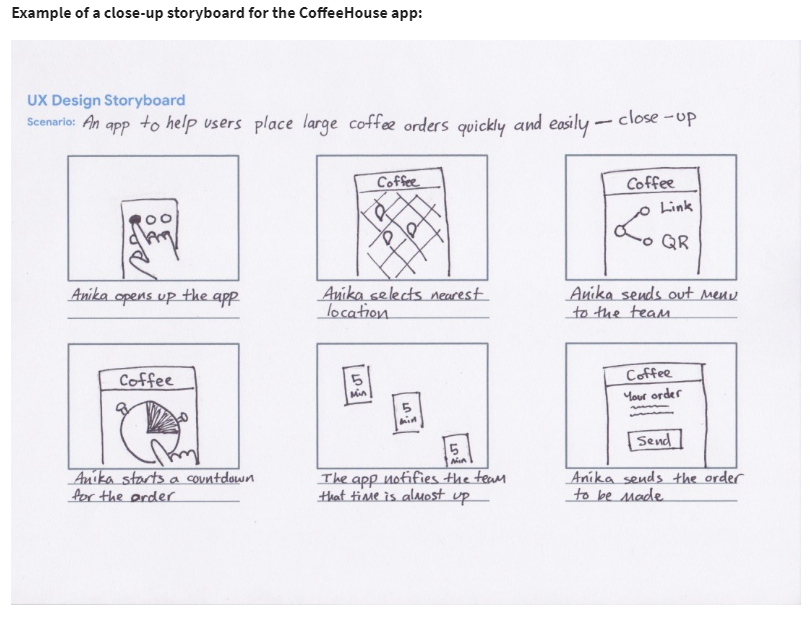 Example of a close-up storyboard for the CoffeeHouse app:
UX Design Storyboard
Scenario: An app to help users place large coffee orders quickly and easily – close-up
Anika opens up the app
Coffee
Anika selects nearest
location
Coffee
Link
QR
Anika sends out menu
to the team
Coffee
Anika starts a countdown
for the order
5
Min
5
Min
5
Min
The app notifies the team
that time is almost up
Coffee
Your order
Send
Anika sends the order
to be made